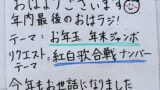 おはようございます
年内最後のおはラジ!
テーマ:お年玉 年末ジャンボ
リクエスト
テーマ:紅白歌合戦ナンバー
今年もお世話になりました